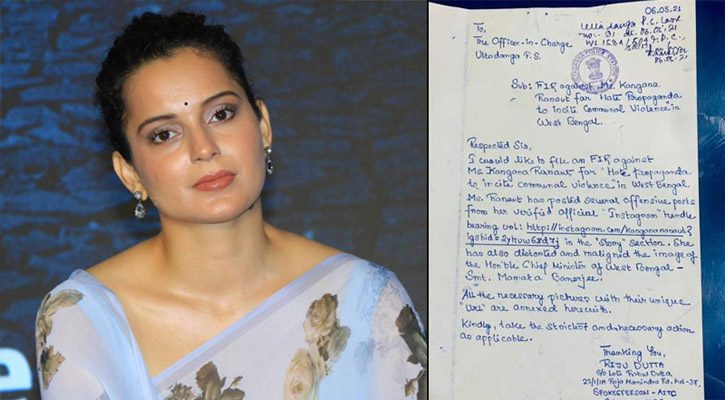 06.05.21
To,
The Officer-in-Charge
Ultadanga P.S.
Sub: FIR against Ms. Kangana
Ranaut for Hate Propaganda
to incite Communal Violence in
West Bengal
Respected Sir,
I would like to file an FIR against
Ms. Kangana Ranaut for "Hate Propaganda
to incite communal violence" in West Bengal
Ms. Ranaut has posted several offensive posts
from her verified official "Instagram" handle
bearing url: http://instagram.com/kanganaranaut?
in the "Story" section. She
has also distorted and maligned the image of
the Hon'ble Chief Minister of West Bengal -
Smt. Mamata Banerjee.
All the necessary pictures with their unique
"Url" are annexed herewith.
Kindly, take the strictest and necessary action
as applicable.
Thanking You,
RIJU DUTTA
SPOKESPERSON - AITC